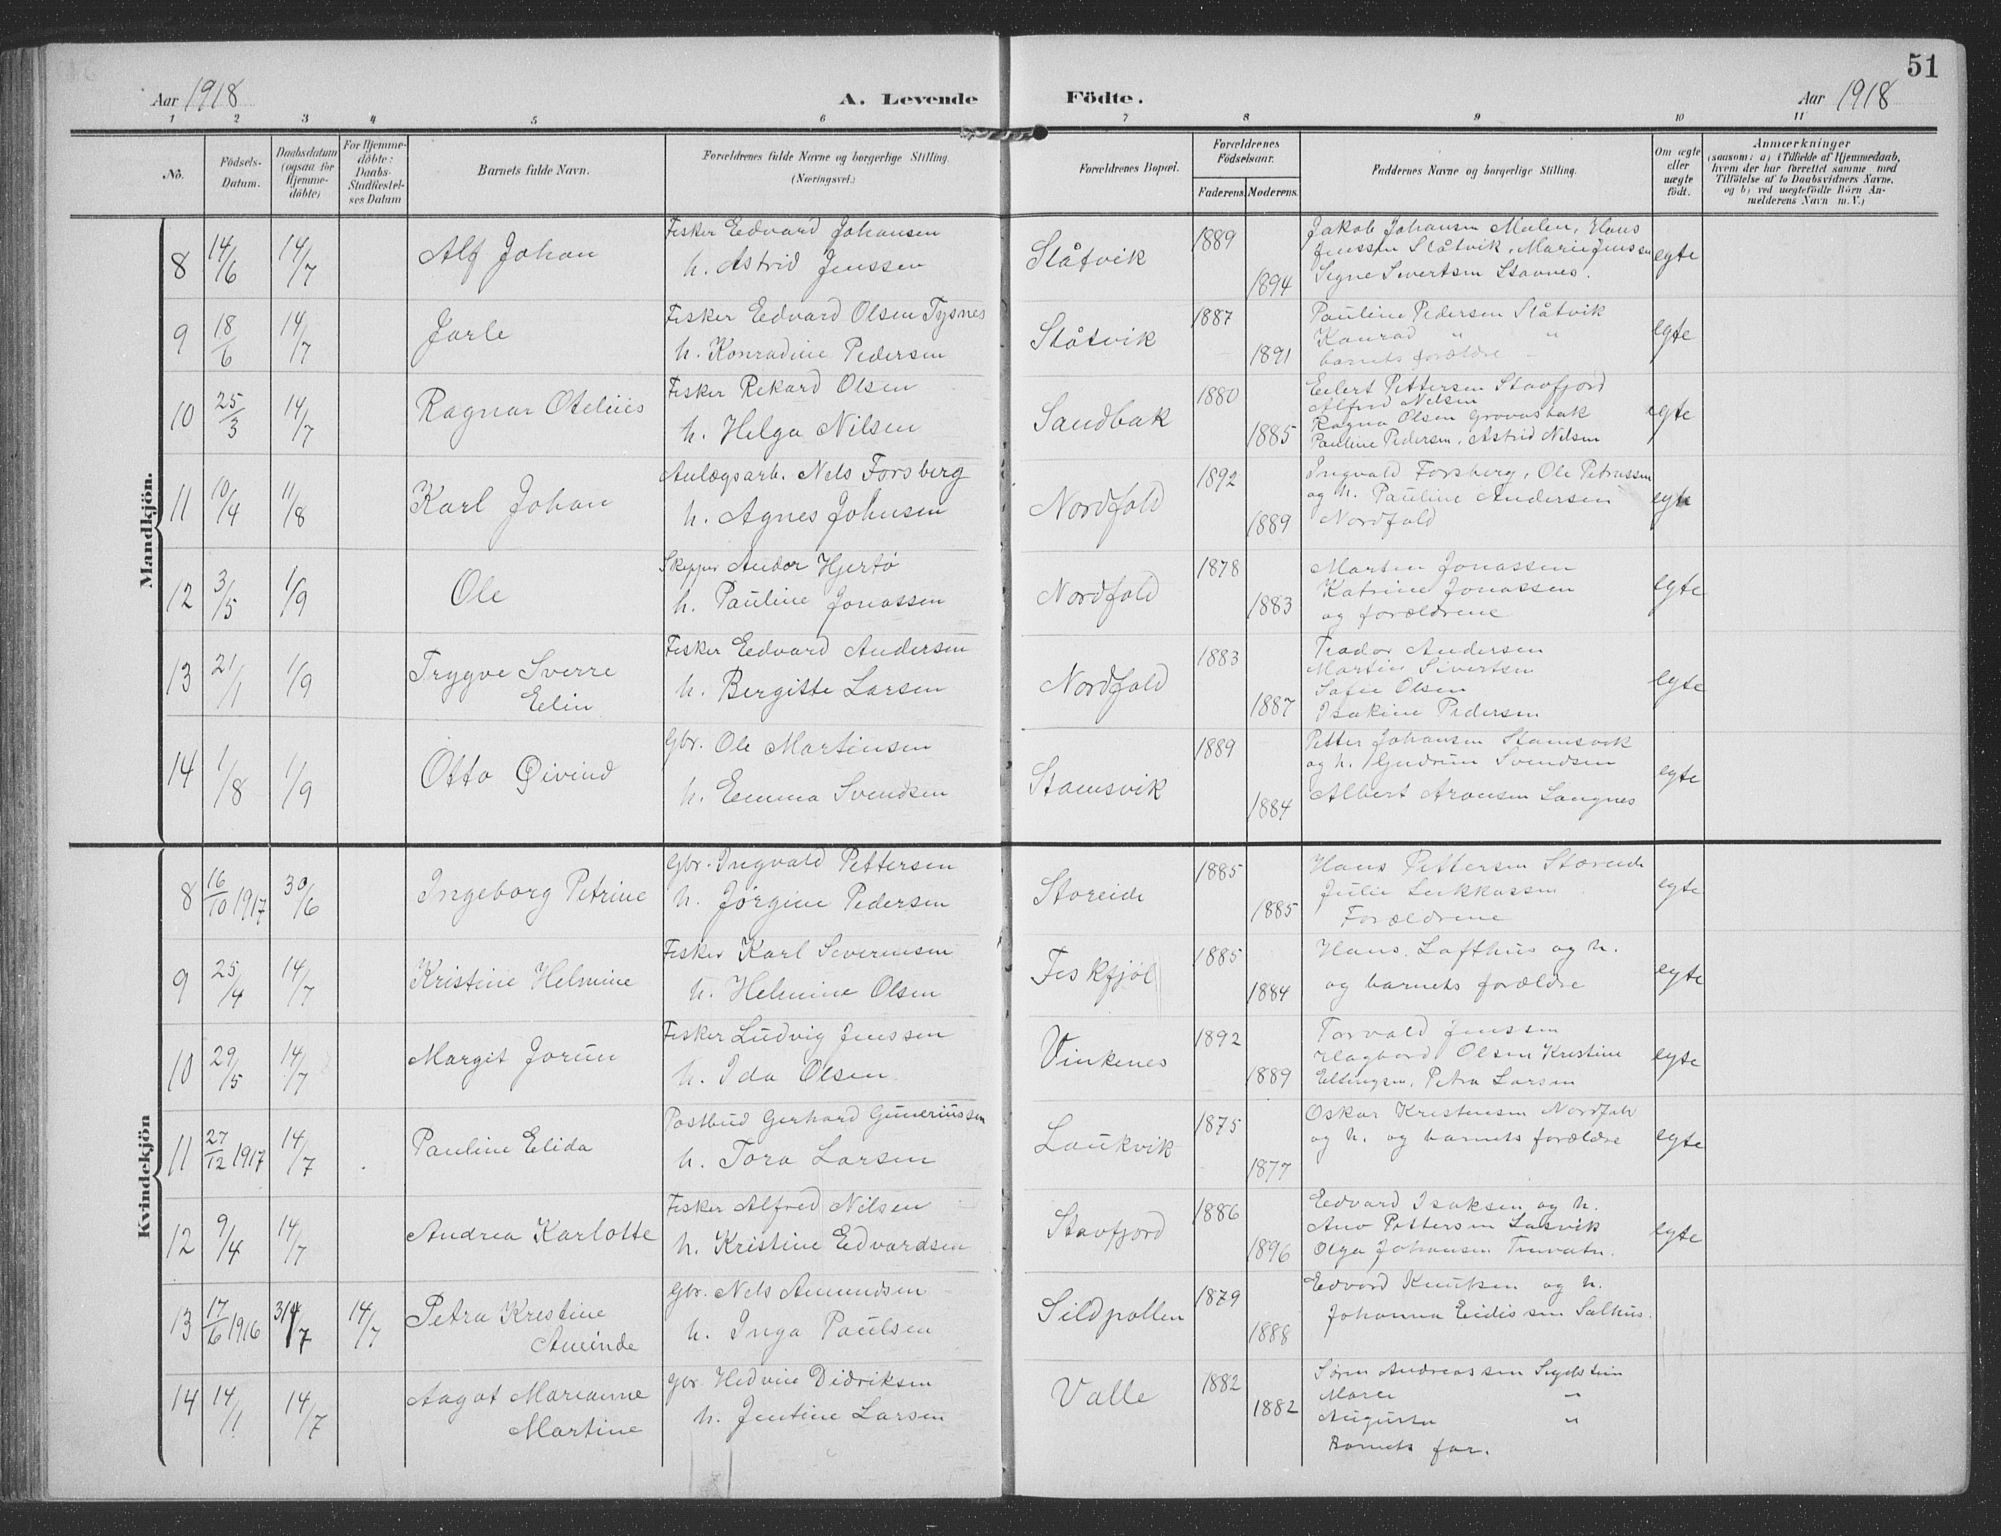 51
Aar 1918 A. Levende Födte. Aar 1918
1 2 3 4 5 6 7 8 9 10 11
No. Födsels-Datum. Daabsdatum (ogsaa for Hjemme-döbte) For Hjemme-döbte: Daabs-Stadfæstel-ses Datum Barnets fulde Navn. Forældrenes fulde Navne og borgerlige Stilling. (Næringsvei.) Forældrenes Bopæl. Forældrenes Födselsaar. Faderens. Moderens. Faddernes Navne og borgerlige Stilling. Om ægte eller uægte födt. Anmærkninger (saasom: a) i Tilfælde af Hjemmedaab, hvem der har forrettet samme med Tilföielse af to Daabsvidners Navne, og b) ved uægtefödte Börn An-melderens Navn m. V.)
Mandkjön.
8 14/6 14/7 Alf Johan Fisker Edvard Johansen Slåtvik 1889 Jakob Johansen Malen, Hans
h. Astrid Jenssen 1894 Jenssen Slåtvik, Marie Jenssen egte
Signe Sivertsen Stavnes.
9 18/6 14/7 Jarle Fisker Edvard Olsen Tysnes Slåtvik 1887 Pauline Pedersen Slåtvik
h. Konradine Pedersen 1891 Konrad " " egte
barnets forældre
10 25/3 14/7 Ragnar Otelius Fisker Rikard Olsen Sandbak 1880 Eilert Pettersen Stavfjord
h. Helga Nilsen 1885 Alfred Nelsen egte
Ragna Olsen Grovasbak
Pauline Pedersen, Astrid Nelsen
11 10/4 11/8 Karl Johan Anlægsarb. Nels Forsberg Nordfold 1892 Ingvald Forsberg, Ole Petrussen
h. Agnes Johnsen 1889 og h. Pauline Andersen egte
Nordfold
12 3/5 1/9 Ole Skipper Andor Hjertø Nordfold 1878 Marten Jonassen
h. Pauline Jonassen 1883 Katrine Jonassen egte
og forældrene
13 21/1 1/9 Trygve Sverre Fisker Edvard Andersen Nordfold 1883 Andersen
Elin h. Bergitte Larsen 1887 Martin Sivertsen egte
Sofie Olsen
Isakine Pedersen
14 1/8 1/9 Otto Øivind Gbr. Ole Martinsen Stamsvik 1889 Petter Johansen Stamsvik
h. Emma Svendsen 1884 og h. Gudrun Svendsen egte
Albert Aronsen Langnes
Kvindekjön
8 16/10 1917 30/6 Ingeborg Petrine Gbr. Ingvald Pettersen Storeide 1885 Hans Pettersen Storeide
h. Jørgine Pedersen 1885 Julie Lukkassen egte
Forældrene
9 25/4 14/7 Kristine Helmine Fisker Karl Severinsen Fiskfjøl 1885 Hans Lofthus og h.
h. Helmine Olsen 1884 og barnets forældre egte
10 29/5 14/7 Margit Jorun Fisker Ludvig Jenssen Vinkenes 1892 Torvald Jenssen
h. Ida Olsen 1889 Hagbord Olsen Kristine egte
Ellingsen, Petra Larsen
11 27/12 1917 14/7 Pauline Elida Postbud Gerhard Guneriussen Laukvik 1875 Oskar Kristensen Nordfold
h. Tora Larsen 1877 og h. og barnets forældre egte
12 9/4 14/7 Andrea Karlotte Fisker Alfred Nilsen Stavfjord 1886 Edvard Isaksen og h.
h. Kristine Edvardsen 1896 Ano Pettersen Lasvik egte
Olga Johansen
13 17/6 1916 14/7 14/7 Petra Kristine Gbr. Nels Amundsen Sildpollen 1879 Edvard Knutsen og h.
Aminde h. Inga Paulsen 1888 Johanna Eidissen Salhus.
14 14/1 14/7 Aagot Marianne Gbr. Hedvin Didriksen Valle 1882 Søren Andreassen
Martine h. Jentine Larsen 1882 Maren "
Augusta "
Barnets far.